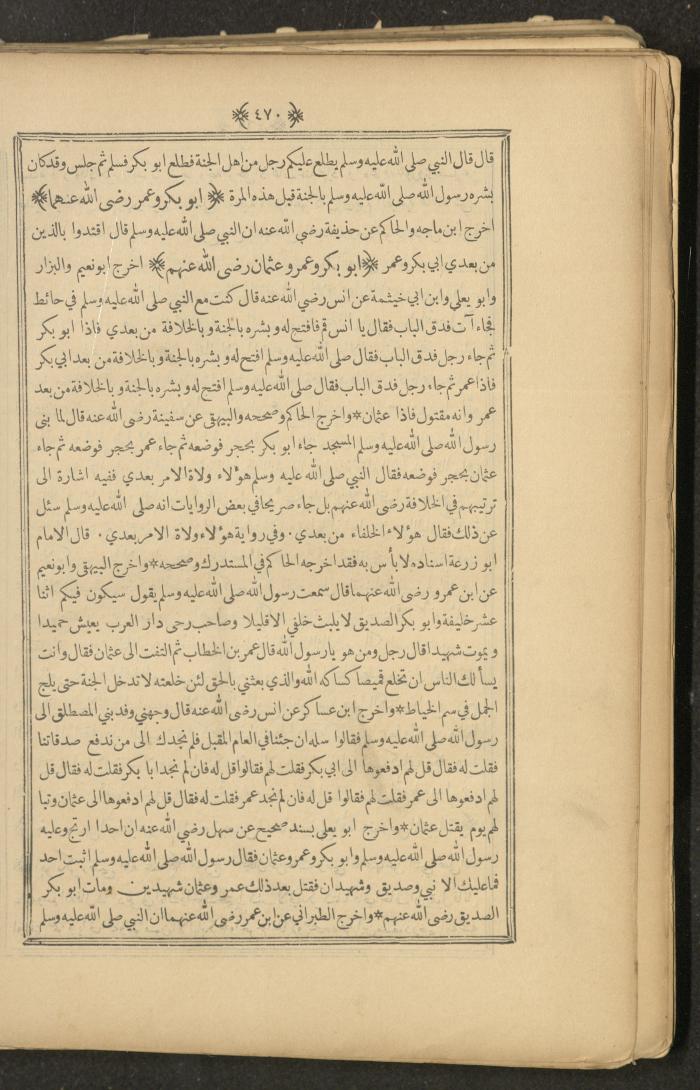 ﴿ ٤٧٠ ﴾
قال قال النبي صلى الله عليه وسلم يطلع عليكم رجل من اهل الجنة فطلع ابو بكر فسلم ثم جلس وقد كان
بشره رسول الله صلى الله عليه وسلم بالجنة قبل هذه المرة ﴿ ابو بكر وعمر رضى الله عنهما ﴾
اخرج ابن ماجه والحاكم عن حذيفة رضى الله عنه ان النبي صلى الله عليه وسلم قال اقتدوا بالذين
من بعدي ابي بكر وعمر ﴿ ابو بكر وعمر وعثمان رضى الله عنهم ﴾ اخرج ابو نعيم والبزار
وابو يعلى وابن ابي خيثمة عن انس رضي الله عنه قال كنت مع النبي صلى الله عليه وسلم في حائط
فجاء آت فدق الباب فقال يا انس قم فافتح له وبشره بالجنة وبالخلافة من بعدي فاذا ابو بكر
ثم جاء رجل فدق الباب فقال صلى الله عليه وسلم افتح له وبشره بالجنة وبالخلافة من بعد ابي بكر
فاذا عمر ثم جاء رجل فدق الباب فقال صلى الله عليه وسلم افتح له وبشره بالجنة وبالخلافة من بعد
عمر وانه مقتول فاذا عثمان * واخرج الحاكم وصححه والبيهقى عن سفينة رضى الله عنه قال لما بنى
رسول الله صلى الله عليه وسلم المسجد جاء ابو بكر بحجر فوضعه ثم جاء عمر بحجر فوضعه ثم جاء
عثمان بحجر فوضعه فقال النبي صلى الله عليه وسلم هؤلاء ولاة الامر بعدي ففيه اشارة الى
ترتيبهم في الخلافة رضى الله عنهم بل جاء صريحا في بعض الروايات انه صلى الله عليه وسلم سئل
عن ذلك فقال هؤلاء الخلفاء من بعدي . وفي رواية هؤلاء ولاة الامر بعدي . قال الامام
ابو زرعة اسناده لا بأس به فقد اخرجه الحاكم في المستدرك وصححه * واخرج البيهقى وابو نعيم
عن ابن عمرو رضى الله عنهما قال سمعت رسول الله صلى الله عليه وسلم يقول سيكون فيكم اثنا
عشر خليفة وابو بكر الصديق لا يلبث خلفي الا قليلا وصاحب رحى دار العرب يعيش حميدا
ويموت شهيدا قال رجل ومن هو يا رسول الله قال عمر بن الخطاب ثم التفت الى عثمان فقال وانت
يسألك الناس ان تخلع قميصا كساكه الله والذي بعثني بالحق لئن خلعته لا تدخل الجنة حتى يلج
الجمل في سم الخياط * واخرج ابن عساكر عن انس رضى الله عنه قال وجهني وفد بني المصطلق الى
رسول الله صلى الله عليه وسلم فقالوا سله ان جئنا في العام المقبل فلم نجدك الى من ندفع صدقاتنا
فقلت له فقال قل لهم ادفعوها الى ابي بكر فقلت لهم فقالوا قل له فان لم نجد ابا بكر فقلت له فقال قل
لهم ادفعوها الى عمر فقلت لهم فقالوا قل له فان لم نجد عمر فقلت له فقال قل لهم ادفعوها الى عثمان وتبا
لهم يوم يقتل عثمان * واخرج ابو يعلى بسند صحيح عن سهل رضي الله عنه ان احدا ارتج وعليه
رسول الله صلى الله عليه وسلم وابو بكر وعمر وعثمان فقال رسول الله صلى الله عليه وسلم اثبت احد
فما عليك الا نبي وصديق وشهيدان فقتل بعد ذلك عمر وعثمان شهيدين ومات ابو بكر
الصديق رضى الله عنهم * واخرج الطبراني عن ابن عمر رضى الله عنهما ان النبي صلى الله عليه وسلم